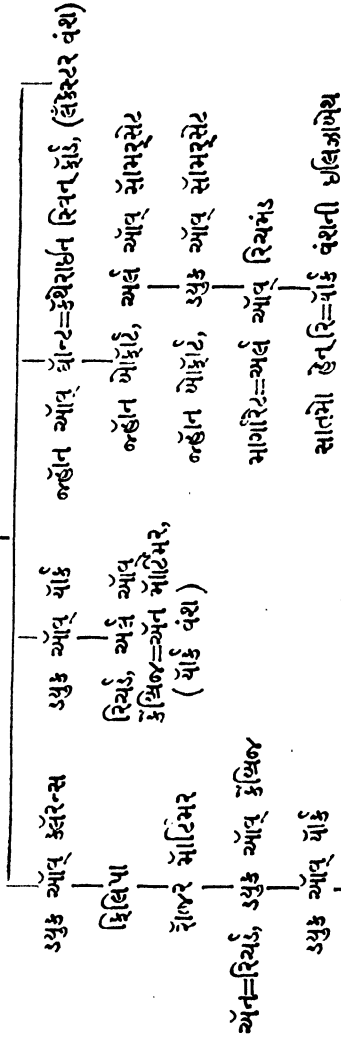 ડ્યુક ઑવ્ ક્લૅરન્સ
ફિલિપા
રૉજર મૉર્ટિમર
ઍન=રિચર્ડ, ડ્યુક ઑવ્ કૅમ્બ્રિજ
ડ્યુક ઑવ્ યૉર્ક
ડ્યુક ઑવ્ યૉર્ક
રિચર્ડ, અર્લ ઑવ્
કૅમ્બ્રિજ=ઍન મૉર્ટિમર,
(યૉર્ક વંશ)
જ્હૉન ઑવ્ ગૉન્ટ=કૅથેરાઇન સ્વિનફૉર્ડ, (લૅંકેસ્ટર વંશ)
જ્હૉન બૉફૉર્ટ, અર્લ ઑવ્ સૉમરસેટ
જ્હૉન બૉફૉર્ટ, ડ્યુક ઑવ્ સૉમરસેટ
માર્ગારેટ=અર્લ ઑવ્ રિચમંડ
સાતમો હેન્રિ=યૉર્ક વંશની ઇલિઝાબેથ